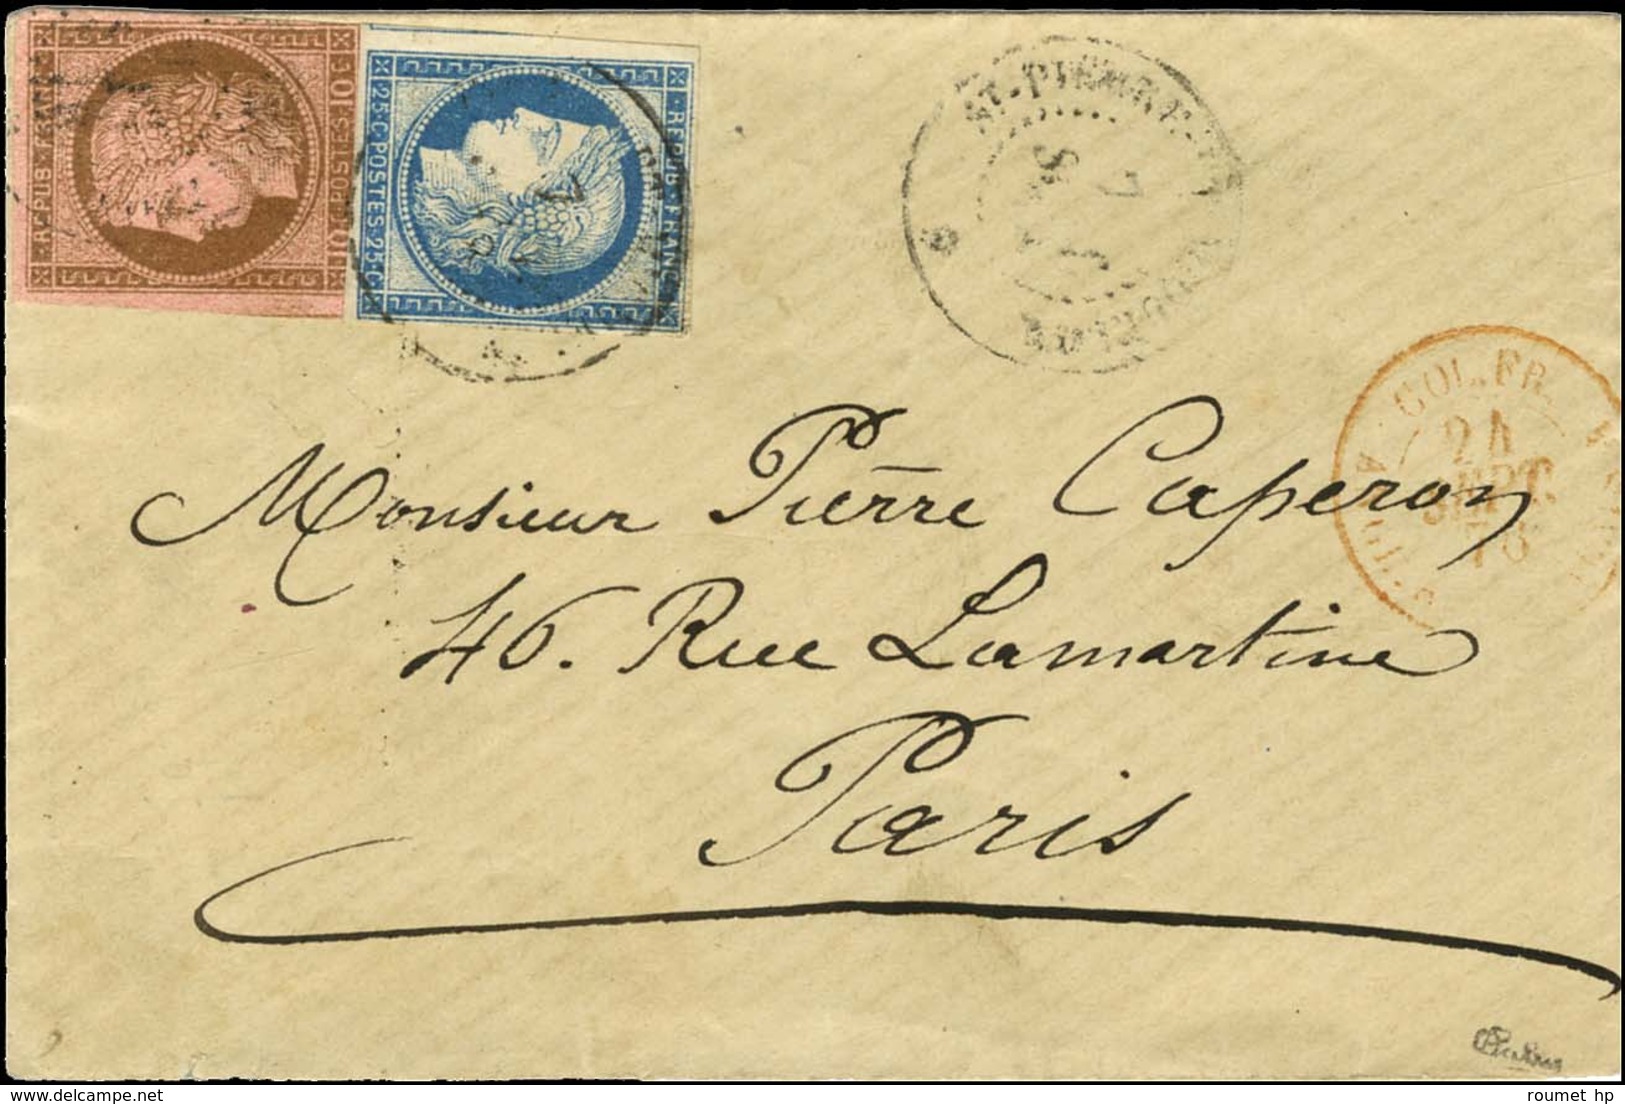 REPUB·FRANC
10·C·POSTES·10·C
REPUB·FRANC
25·C·POSTES·25·C
ST-PIERRE-
7
COL. FR.
24
SEPT.
78
Monsieur Pierre Caperon
46. Rue Lamartine
Paris
www.delcampe.net
roumet hp